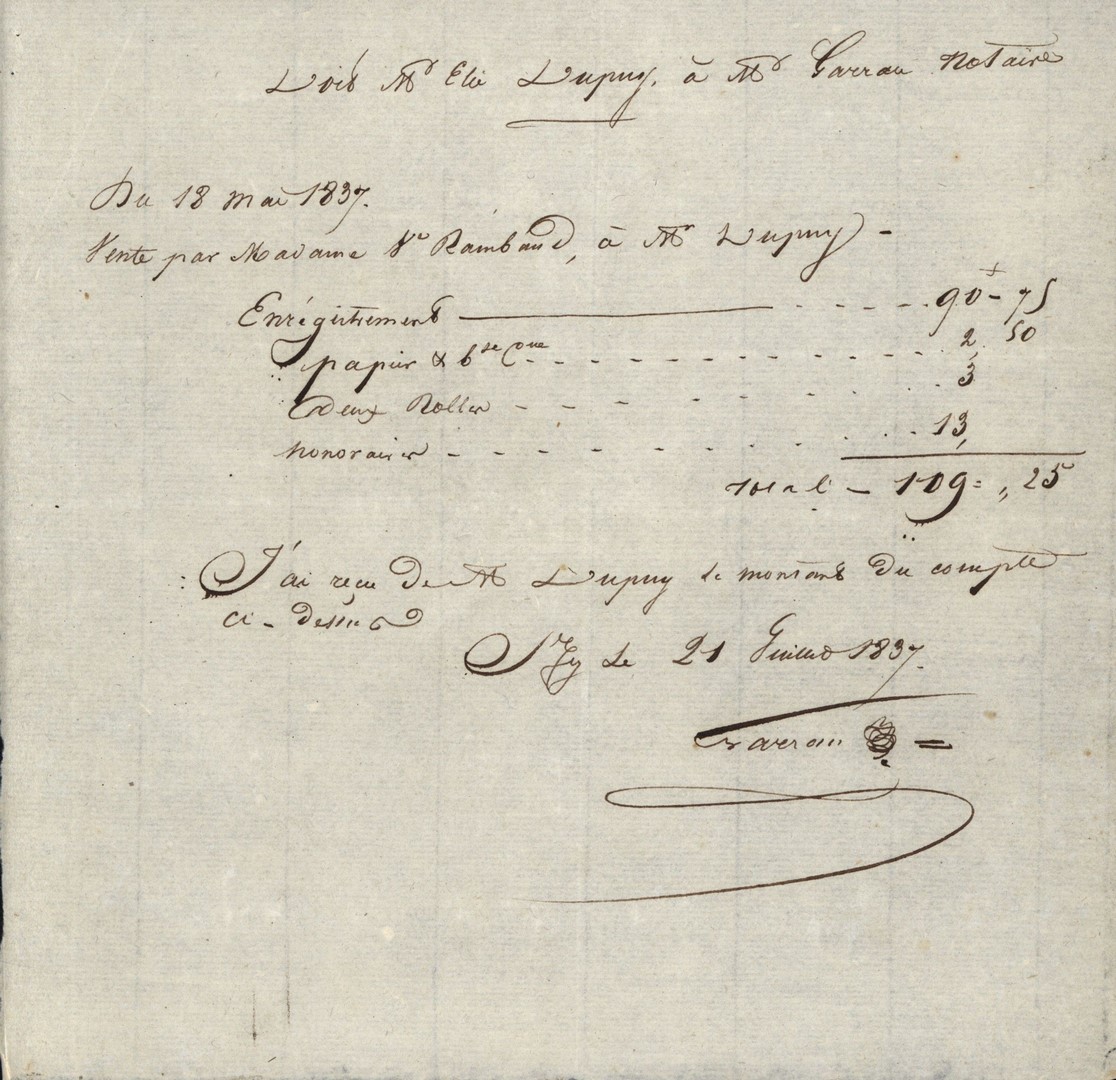 Doit Mr Elie Dupuy, à Mr Garrau Notaire
Du 18 mai 1837.
Vente par Madame Ve Rambaud, à Mr Dupuy -
Enrégistrement 90 - 75
papier & 2, 50
deux Rolles 3
honoraires 13,
total - 109 = ,, 25
J'ai reçu de Mr Dupuy le montant du compte
ci-dessus
le 21 Juillet 1837.
Garrau